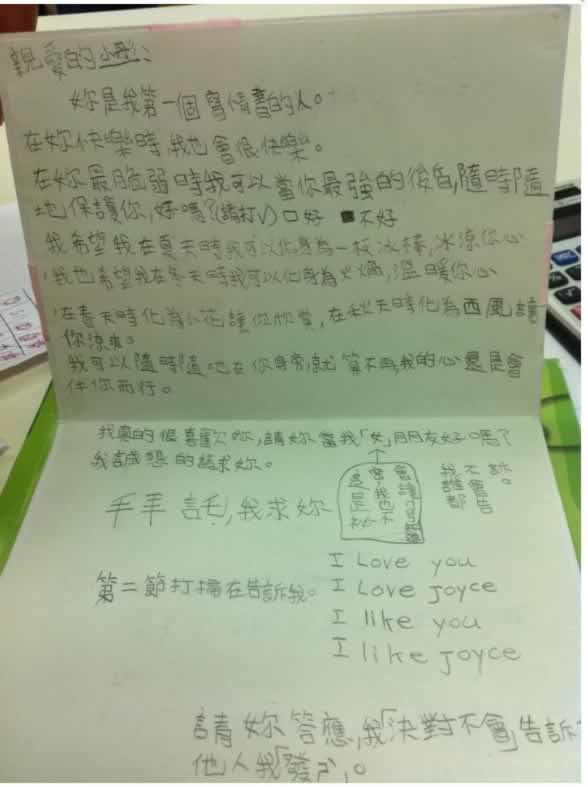 親愛的小彤：
妳是我第一個寫情書的人。
在妳快樂時我也會很快樂。
在妳最脆弱時我可以當你最強的後盾，隨時隨
地保護你，好嗎？(請打ˇ) □好 ■不好
我希望我在夏天時我可以化身為一枝冰棒，冰涼你心
我也希望我在冬天時我可以化身為火爐，溫暖你心
在春天時化為小花讓你欣賞，在秋天時化為西風讓
你涼爽。
我可以隨時隨地在你身旁，就算不再，我的心還是會
伴你而行。
我真的很喜歡妳，請妳當我「女」朋友好嗎？
我誠懇的請求妳。
拜託，我求妳
這是祕
密，我也不
會讓
我不會告訴
誰都。
I Love you
I Love joyce
I like you
I like joyce
第二節打掃在告訴我。
請妳答應，我「決對不會」告訴
他人我「發ㄕˋ」。